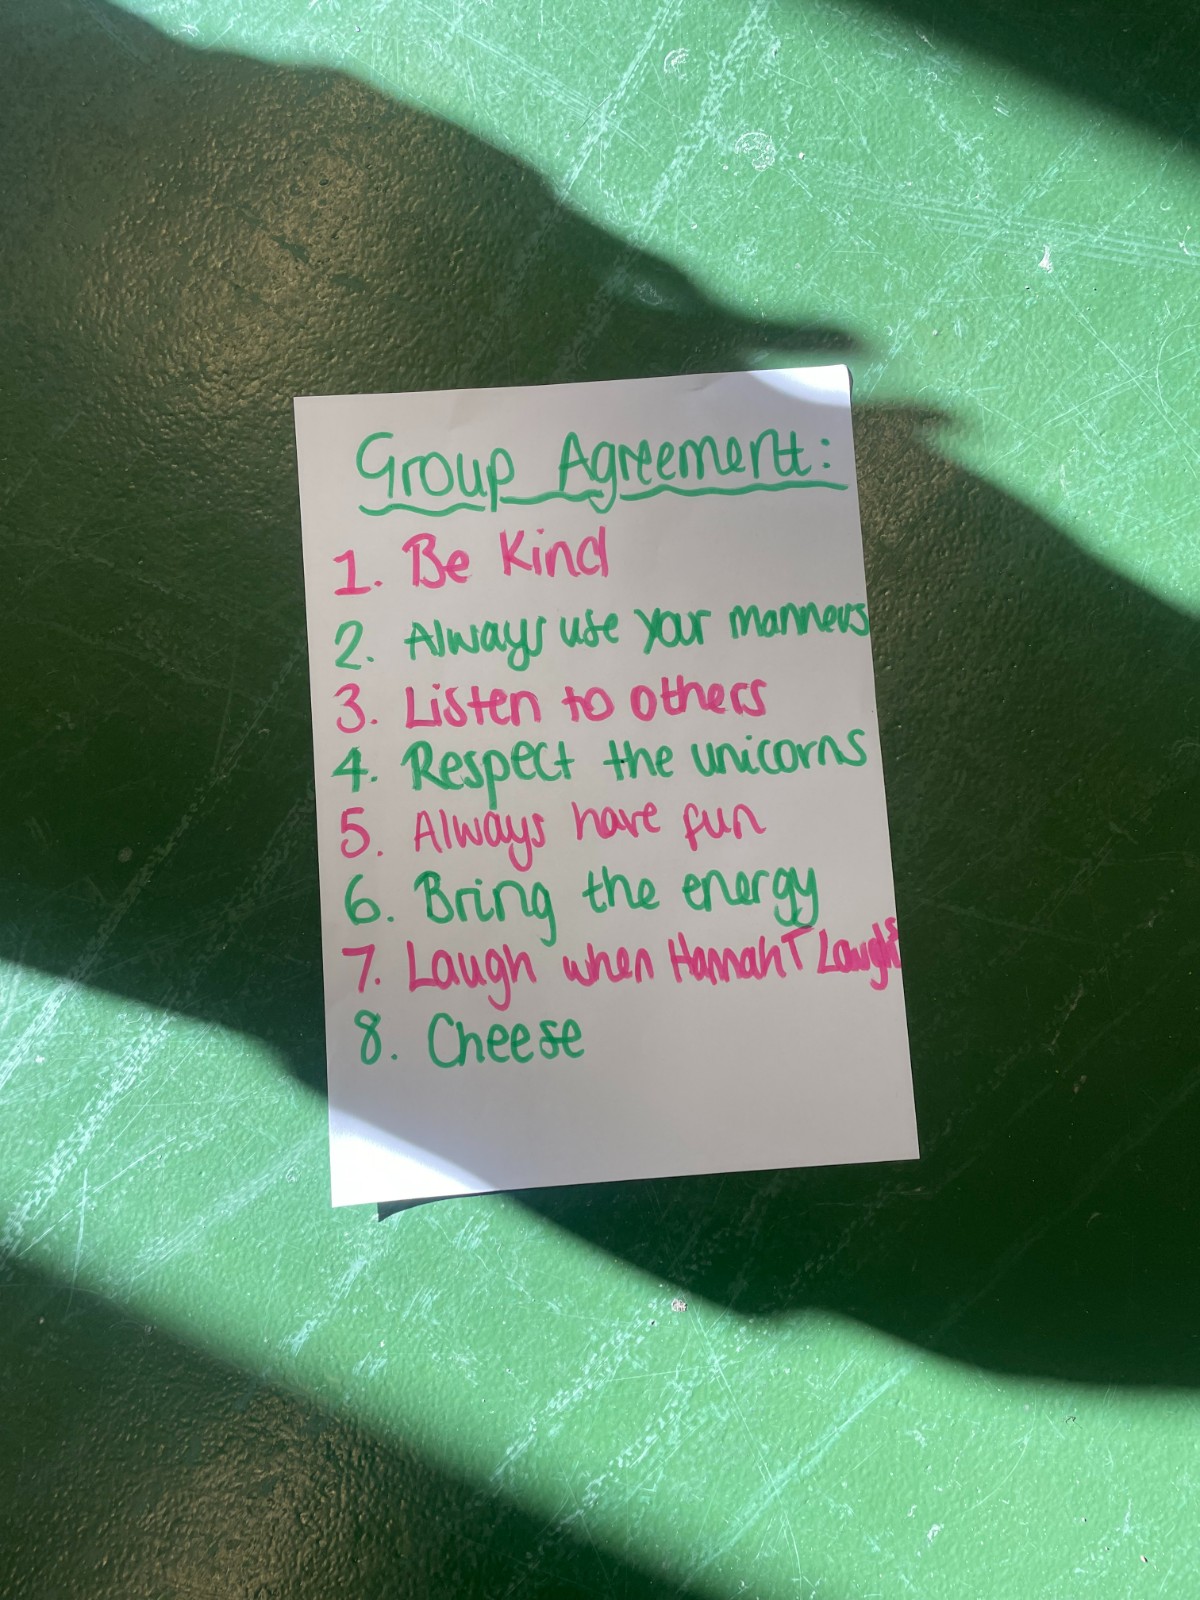 Group Agreement:
1. Be Kind
2. Always use your manners
3. Listen to others
4. Respect the unicorns
5. Always have fun
6. Bring the energy
7. Laugh when Hannah T Laughs
8. Cheese